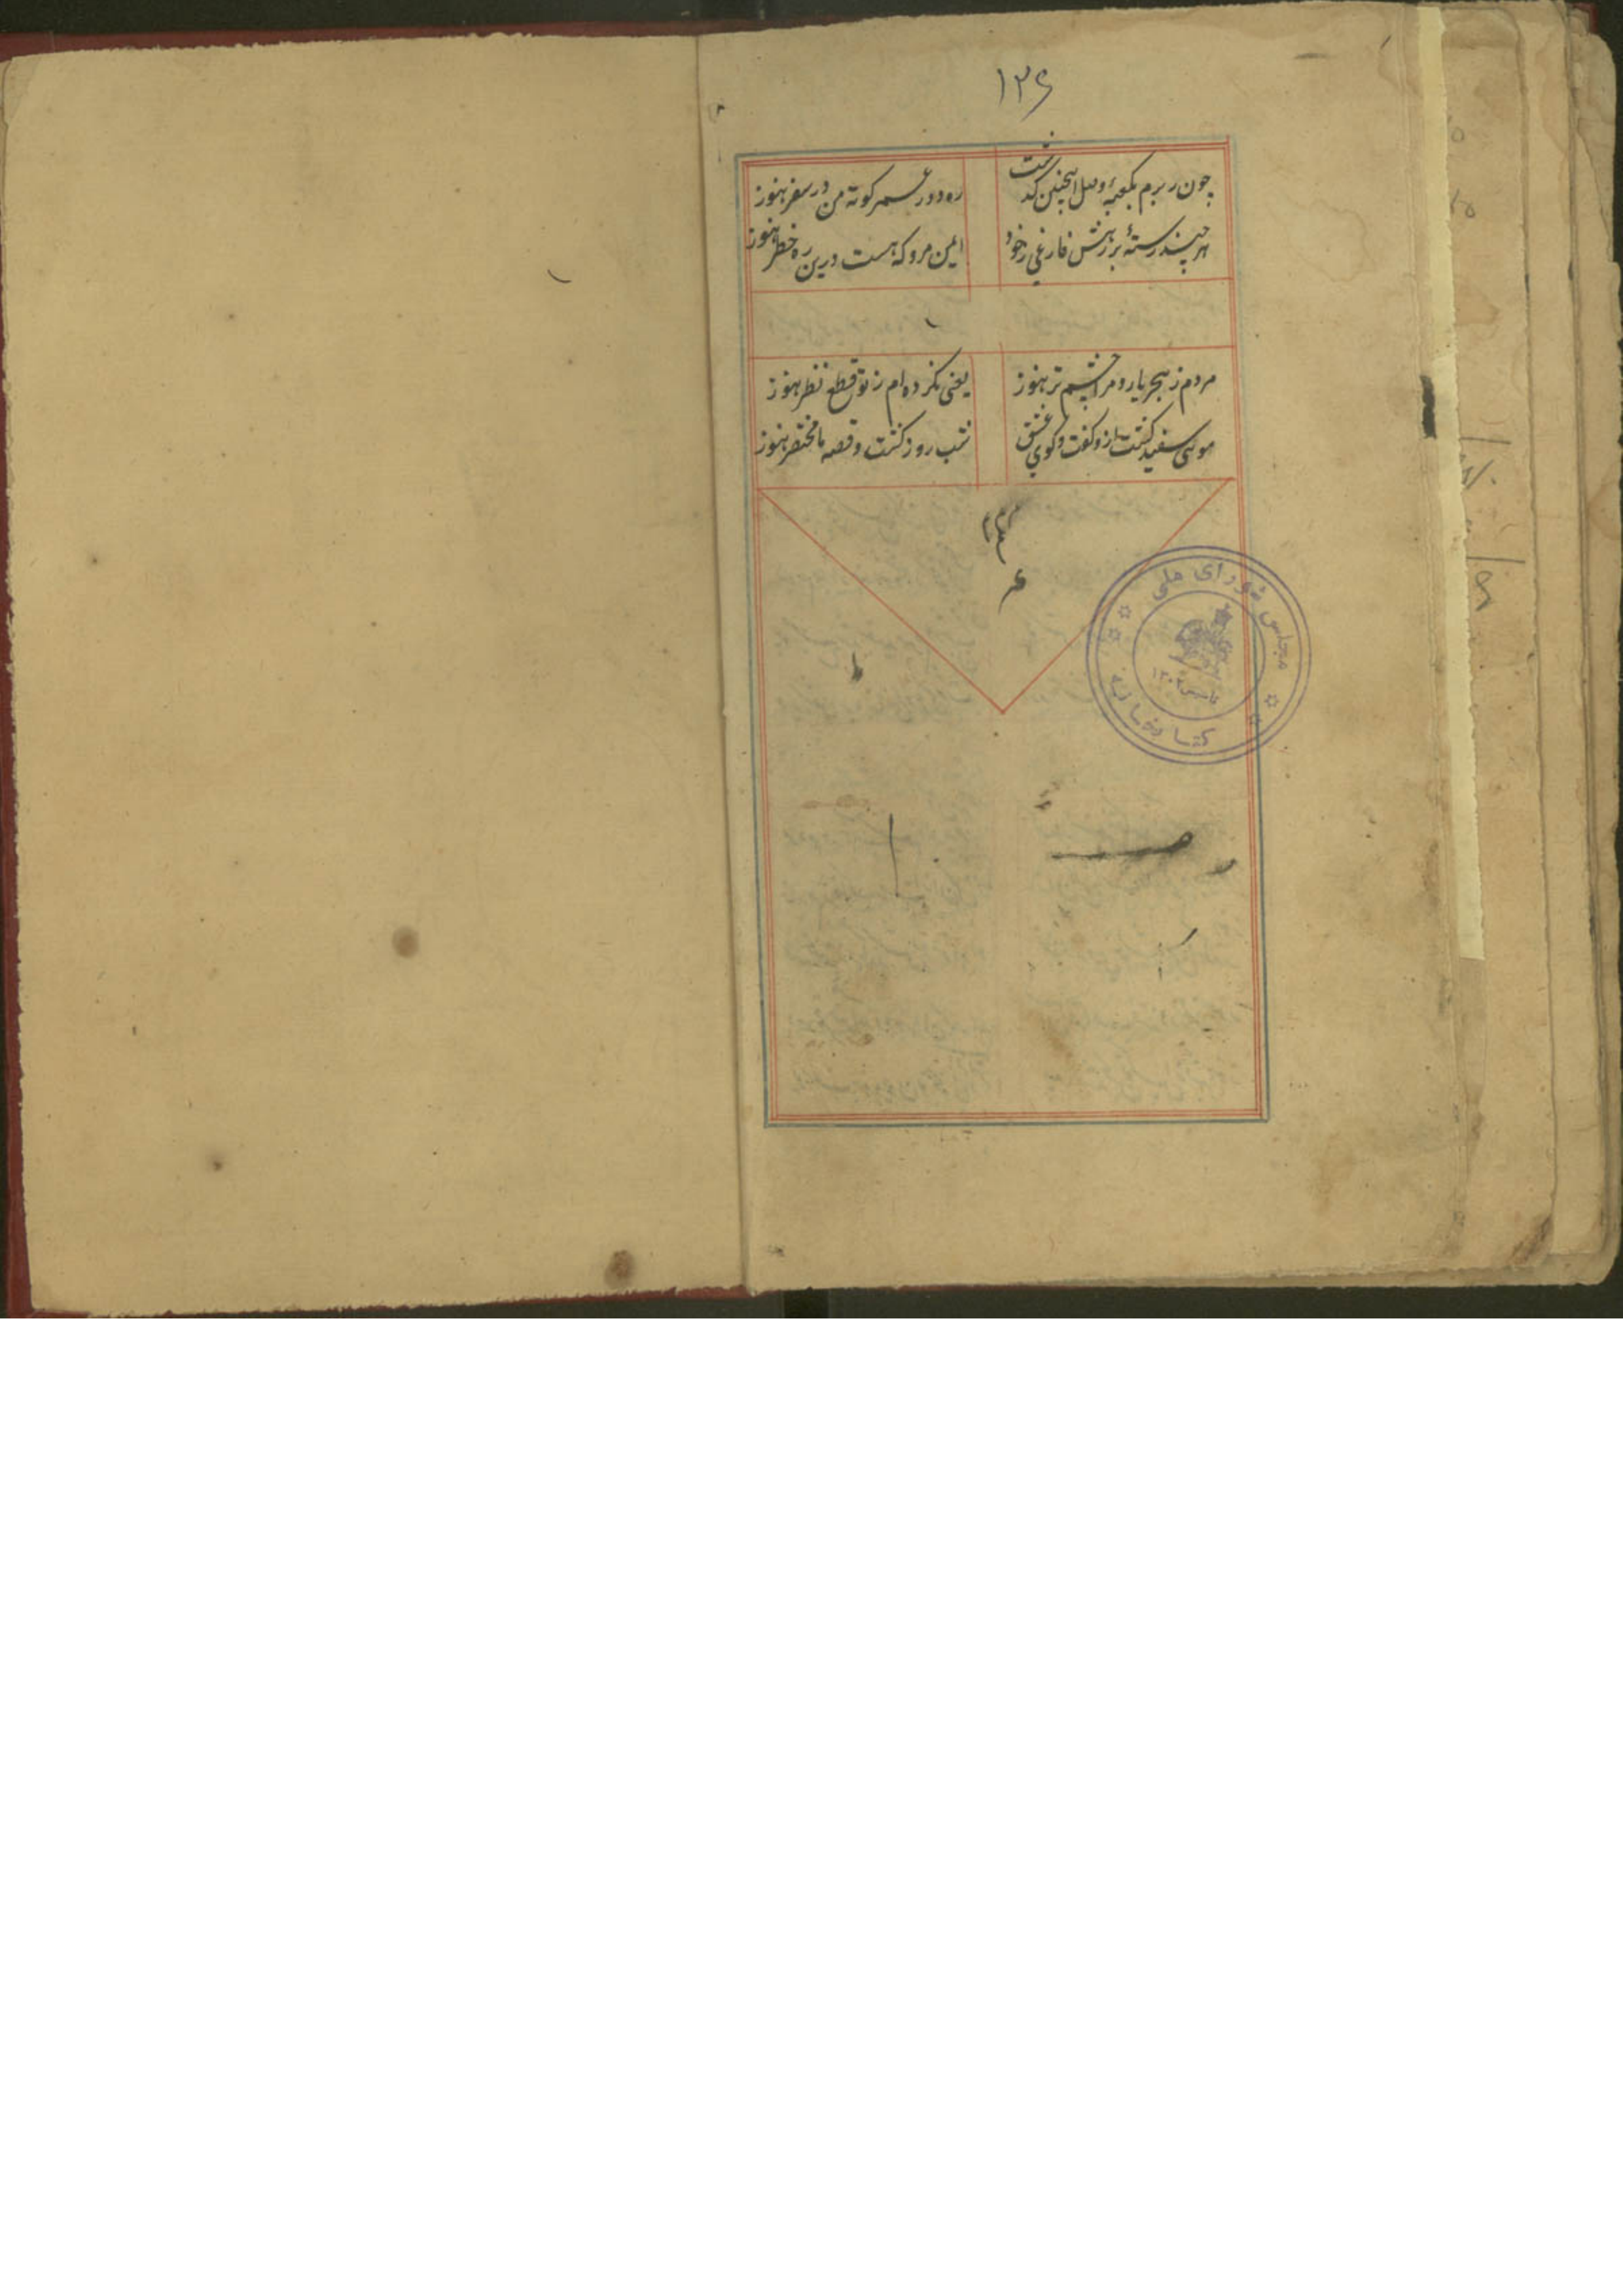 ۱۳۶
چون ره برم بکعبهٔ وصل اینچنین که گذشت
ره دور عمر کوته من در سفر هنوز
هر چند رستهٔ ز فارغی ز خود
ایمن مرو که هست درین ره خطر هنوز
مردم ز هجر یار و مرا چشم تر هنوز
یعنی نکرده‌ام ز تو قطع نظر هنوز
موی سفید گشت از گفت و گوی عشق
شب روز گشت و قصه ما مختصر هنوز
مجلس شورای ملی
تاسیس ۱۳۰۲
کتابخانه